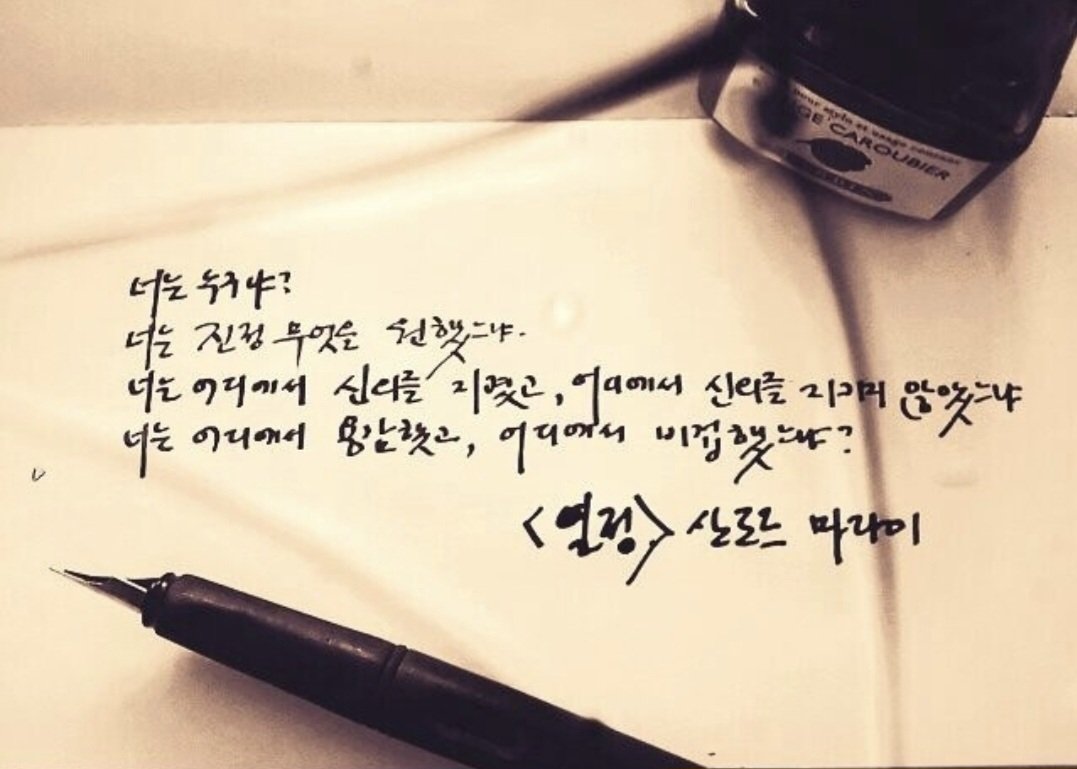 pour stylo et usage courant
GE CAROUBIER
너는 누구냐?
너는 진정 무엇을 원했느냐.
너는 어디에서 신의를 지켰고, 어디에서 신의를 지키지 않았느냐
너는 어디에서 용감했고, 어디에서 비겁했느냐?
<열정> 산도르 마라이